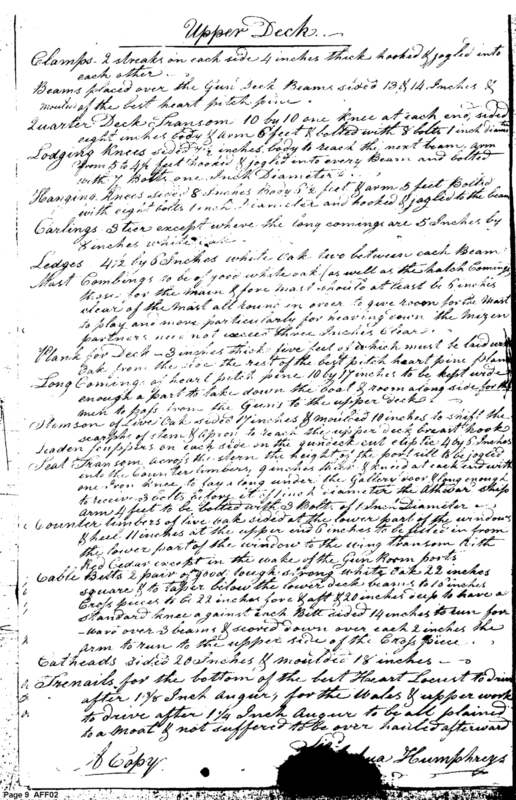 Upper Deck
Clamps. 2 streaks on each side 4 inches thick hooked & jogled into
each other
Beams placed over the Gun Deck Beams sided 13 & 14 Inches &
moulded of the best heart pitch pine.
Quarter Deck Transom 10 by 10 one knee at each end, sided
eight inches body & arm 6 feet & bolted with 8 bolts 1 inch diameter
Lodging Knees sided 7½ inches, body to reach the next beam, arm
from 3 to 4½ feet hooked & jogled into every Beam and bolted
with 7 Bolts one Inch Diameter
Hanging Knees sided 8 Inches Body 5½ feet & arm 3 feet Bolted
with eight bolts 1 inch Diameter and hooked & jogled to the beam
Carlings 3 tier except where the long comings are 5 Inches by
8 inches white oak
Ledges 4½ by 5 Inches white Oak two between each Beam
Mast Combings to be of good white oak, as well as the hatch Comings
those for the main & fore mast should at least be 5 inches
clear of the Mast all round in order to give room for the Mast
to play and more particularly for heaving down the mizen
partners need not exceed three Inches Clear
Plank for Deck - 3 inches thick five feet of which must be laid with
Oak from the side the rest of the best pitch heart pine plank
Long Comings of heart pitch pine 10 by 17 inches to be kept wide
enough a part to take down the boat & room along side for the
men to pass from the Guns to the upper deck
Stemson of Live Oak sided 17 inches & moulded 10 inches to shift the
scarphs of stem & apron to reach the upper deck breast hook
Leaden scuppers on each side in the gundeck cut eliptic 4 by 5 Inches
Seat Transom across the stern the height of the port sill to be jogled
into the Counter timbers, 9 inches thick & kneed at each end with
one Iron knee to fay along under the Gallery door & long enough
to receive 3 bolts before it of 1 inch diameter the Athwart ships
arm 4 feet to be bolted with 3 Bolts of 1 Inch Diameter
Counter timbers of live oak sided at the lower part of the windows
& heel 11 inches at the upper end 7 inches to be filled in from
the lower part of the window to the wing transom with
Red Cedar except in the wake of the Gun Room ports
Cable Bitts 2 pair of good tough strong white Oak 22 inches
square & to taper below the lower deck beams to 10 inches
Cross pieces to be 22 inches fore & aft & 20 inches deep to have a
standard knee against each Bitt sided 14 inches to run for
-ward over 3 beams & scored down over each 2 inches the
arm to run to the upper side of the Cross piece
Catheads sided 20 Inches & moulded 18 inches
Trenails for the bottom of the best Heart Locust to drive
after 1 3/8 Inch Augur, for the Wales & upper work
to drive after 1¼ Inch Augur to be all plained
to a Moat & not suffered to be over hailed afterward
A Copy
Joshua Humphreys
Page 9 AFF02